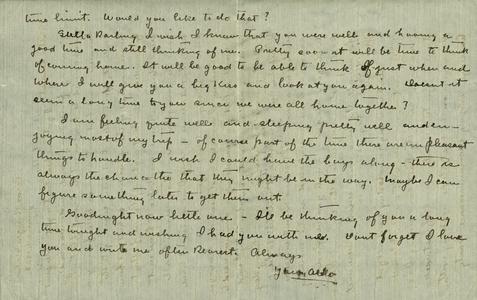 time limit. Would you like to do that?
Stella Darling I wish I knew that you were well and having a
good time and still thinking of me. Pretty soon it will be time to think
of coming home. It will be good to be able to think of just when and
where I will give you a big kiss and look at you again. Doesnt it
seem a long time to you since we were all home together?
I am feeling quite well and sleeping pretty well and en-
joying most of my trip - of course part of the time there are unpleasant
things to handle. I wish I could have the boys along - there is
always the chance tho that they might be in the way. Maybe I can
figure something later to get them out
Goodnight now little one - Ill be thinking of you a long
time tonight and wishing I had you with me. Dont forget I love
you and write me often Dearest. Always
Your